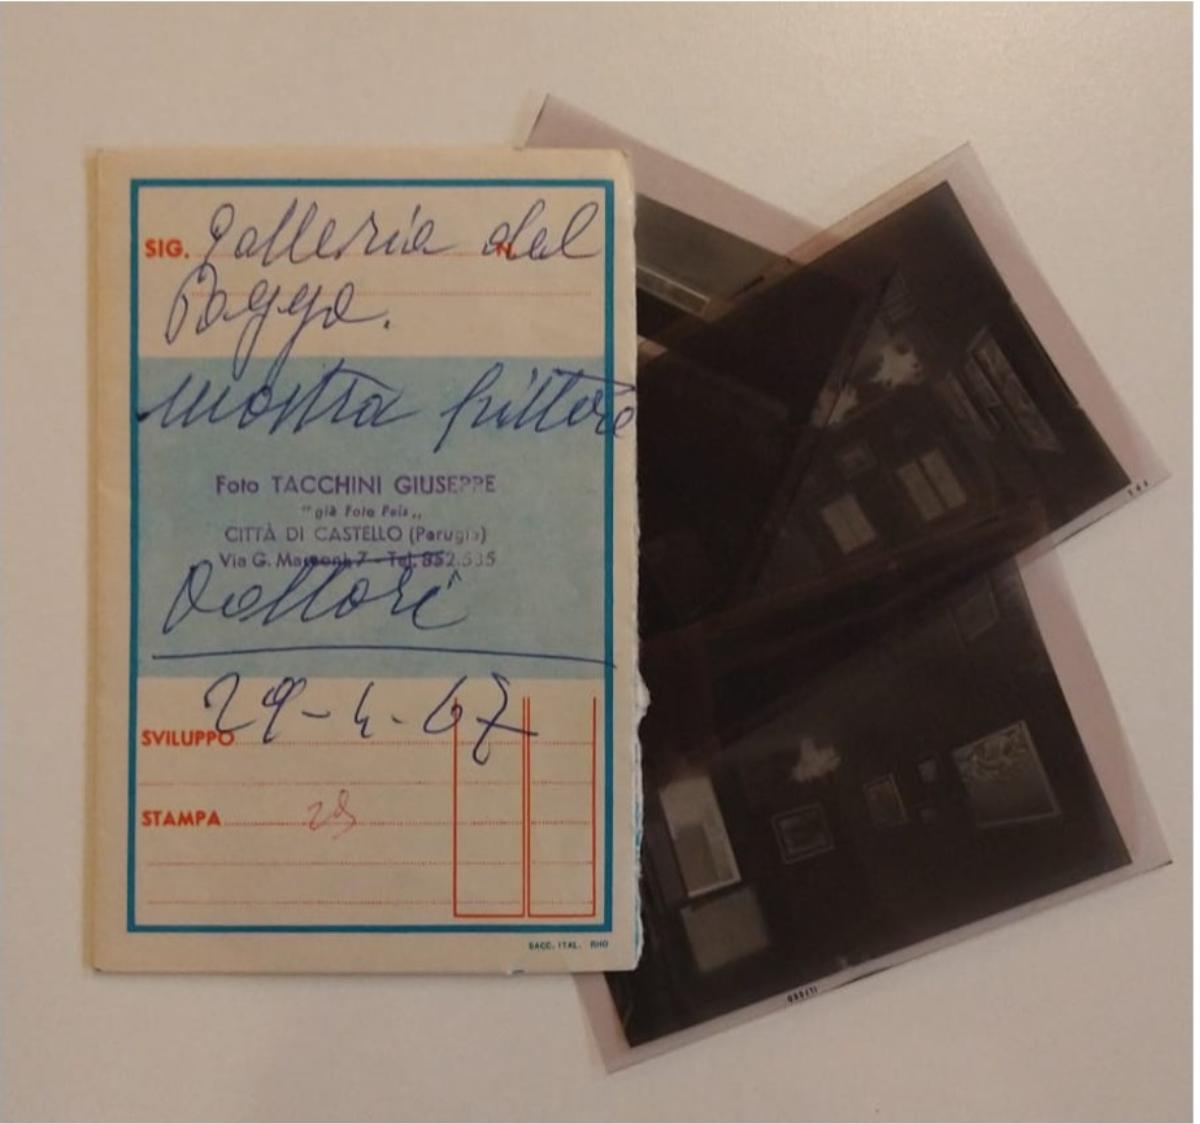 SIG. Galleria del
Poggo.
mostra pittore
Foto TACCHINI GIUSEPPE
"già Foto Peis„
CITTÀ DI CASTELLO (Perugia)
Via G. Marconi, 7 - Tel. 852.535
Dottori
29-4-67
SVILUPPO
STAMPA
SACC. ITAL. RHO